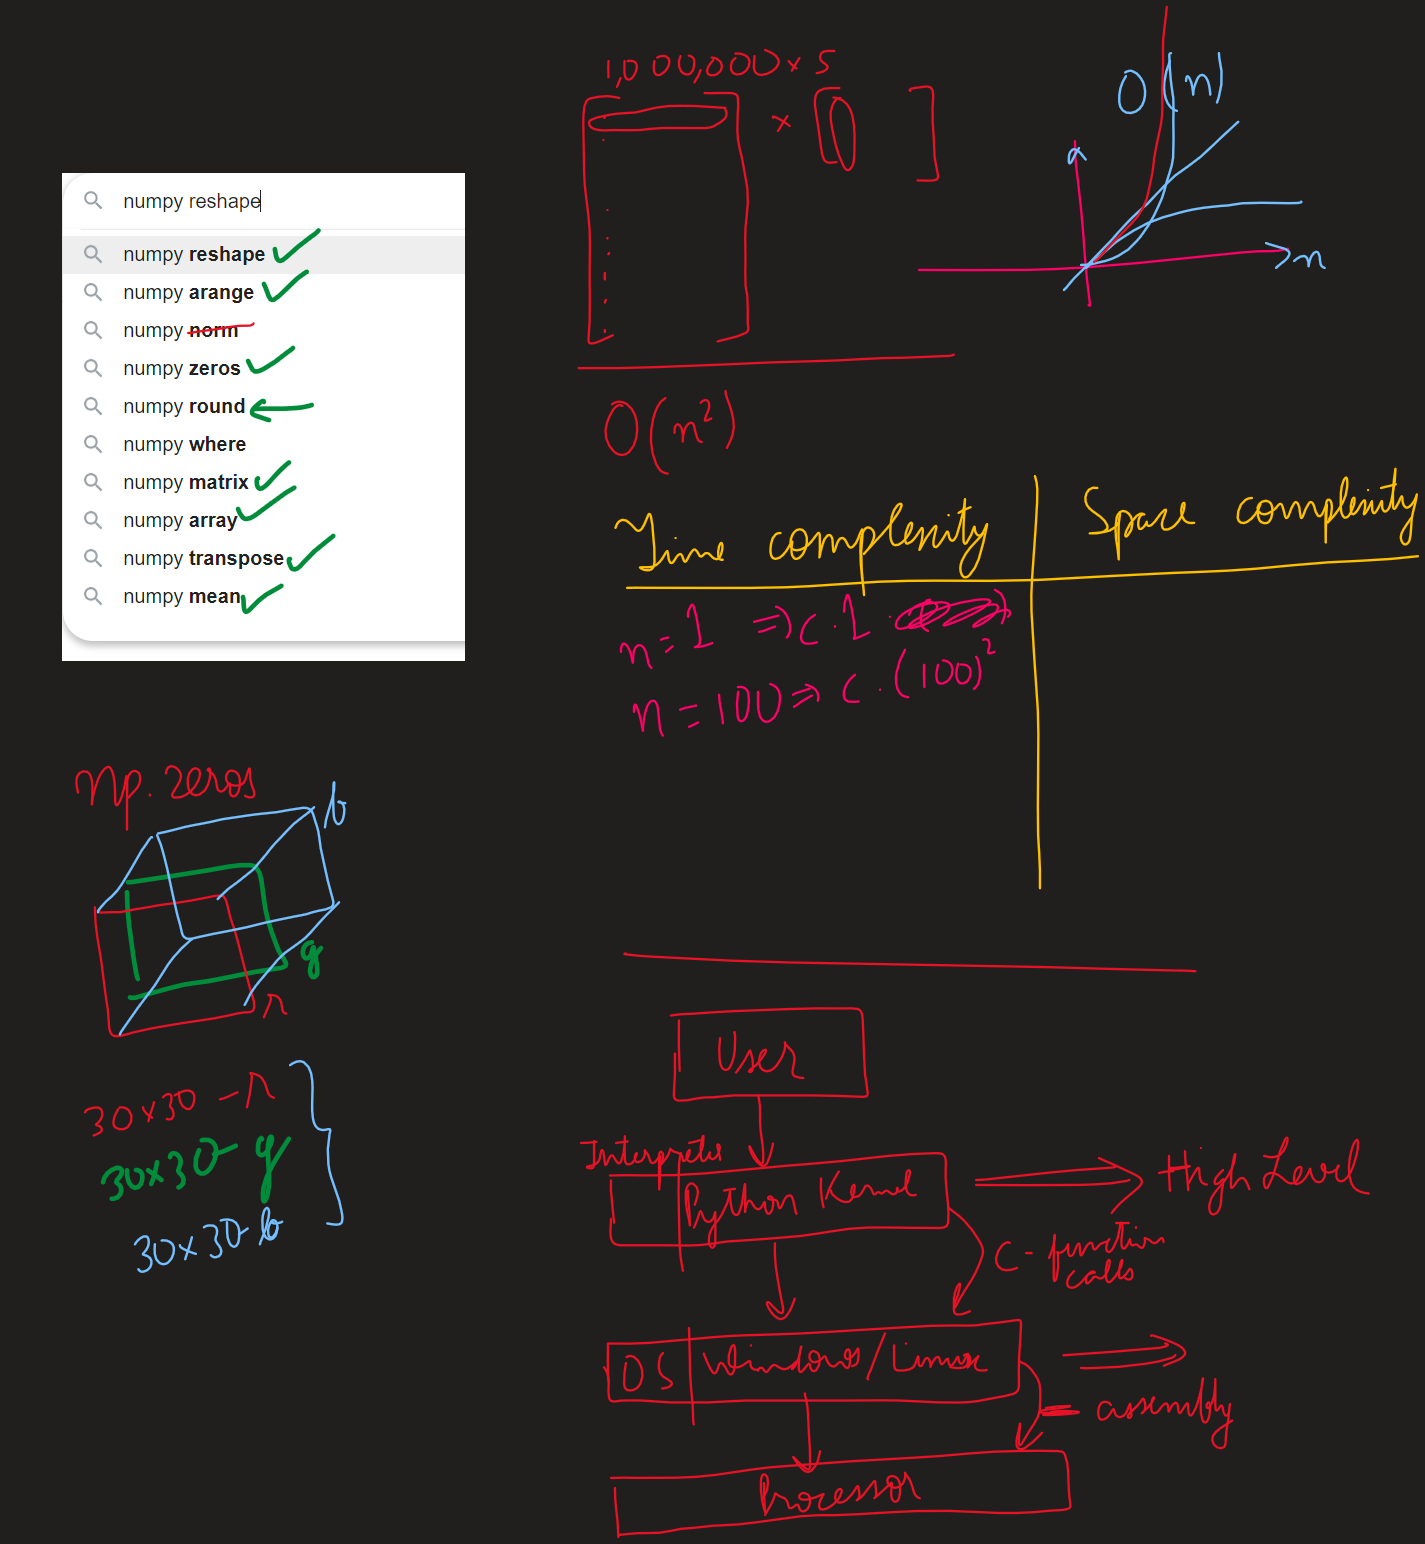 numpy reshape
numpy reshape
numpy arange
numpy norm
numpy zeros
numpy round
numpy where
numpy matrix
numpy array
numpy transpose
numpy mean
np.zeros
b
g
r
30x30-r
30x30-g
30x30-b
1,000,000 x 5
x
O(n)
n
O(n²)
Time complexity
Space complexity
n=1 ⇒ c.1
n=100 ⇒ c.(100)²
User
Interpreter
Python Kernel
High Level
C-function
calls
OS
Windows/Linux
assembly
Processor